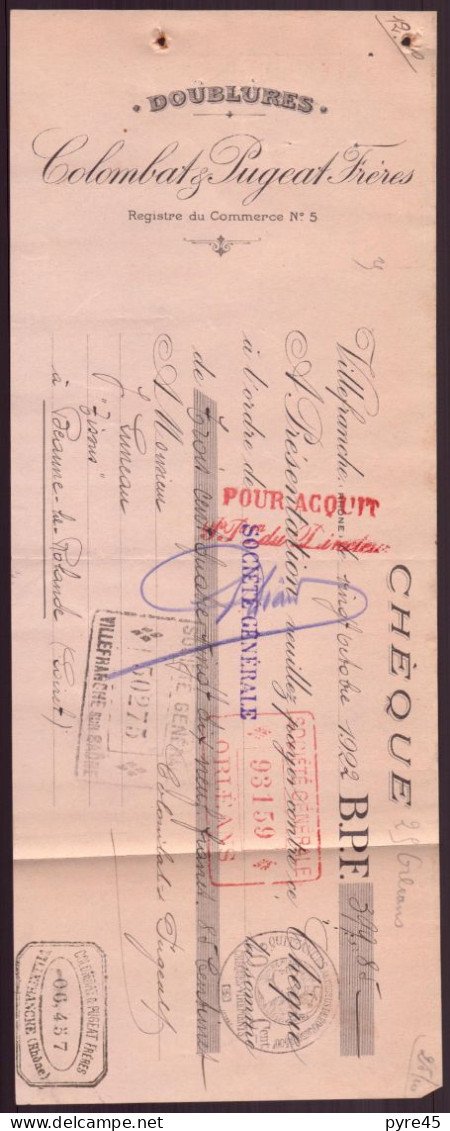 DOUBLURES
Colombat & Pugeat Frères
Registre du Commerce N° 5
CHÈQUE
25 Orléans
Villefranche, (RHÔNE) le vingt octobre 1922 B.P.F.
A Présentation veuillez payer contre ce Chèque
à l'ordre de
de trois cent quatre vingt dix neuf francs 85 centimes
A Monsieur
J. Luneau
"Tissus"
à Beaune-la-Rolande (Loiret)
Colombat & Pugeat
POUR ACQUIT
du Directeur
SOCIÉTÉ GÉNÉRALE
SOCIÉTÉ GÉNÉRALE
93159
ORLÉANS
SOCIÉTÉ GÉNÉRALE
150275
VILLEFRANCHE SUR SAÔNE
COLOMBAT & PUGEAT FRÈRES
006.457
VILLEFRANCHE (Rhône)
delcampe.net
pyre45